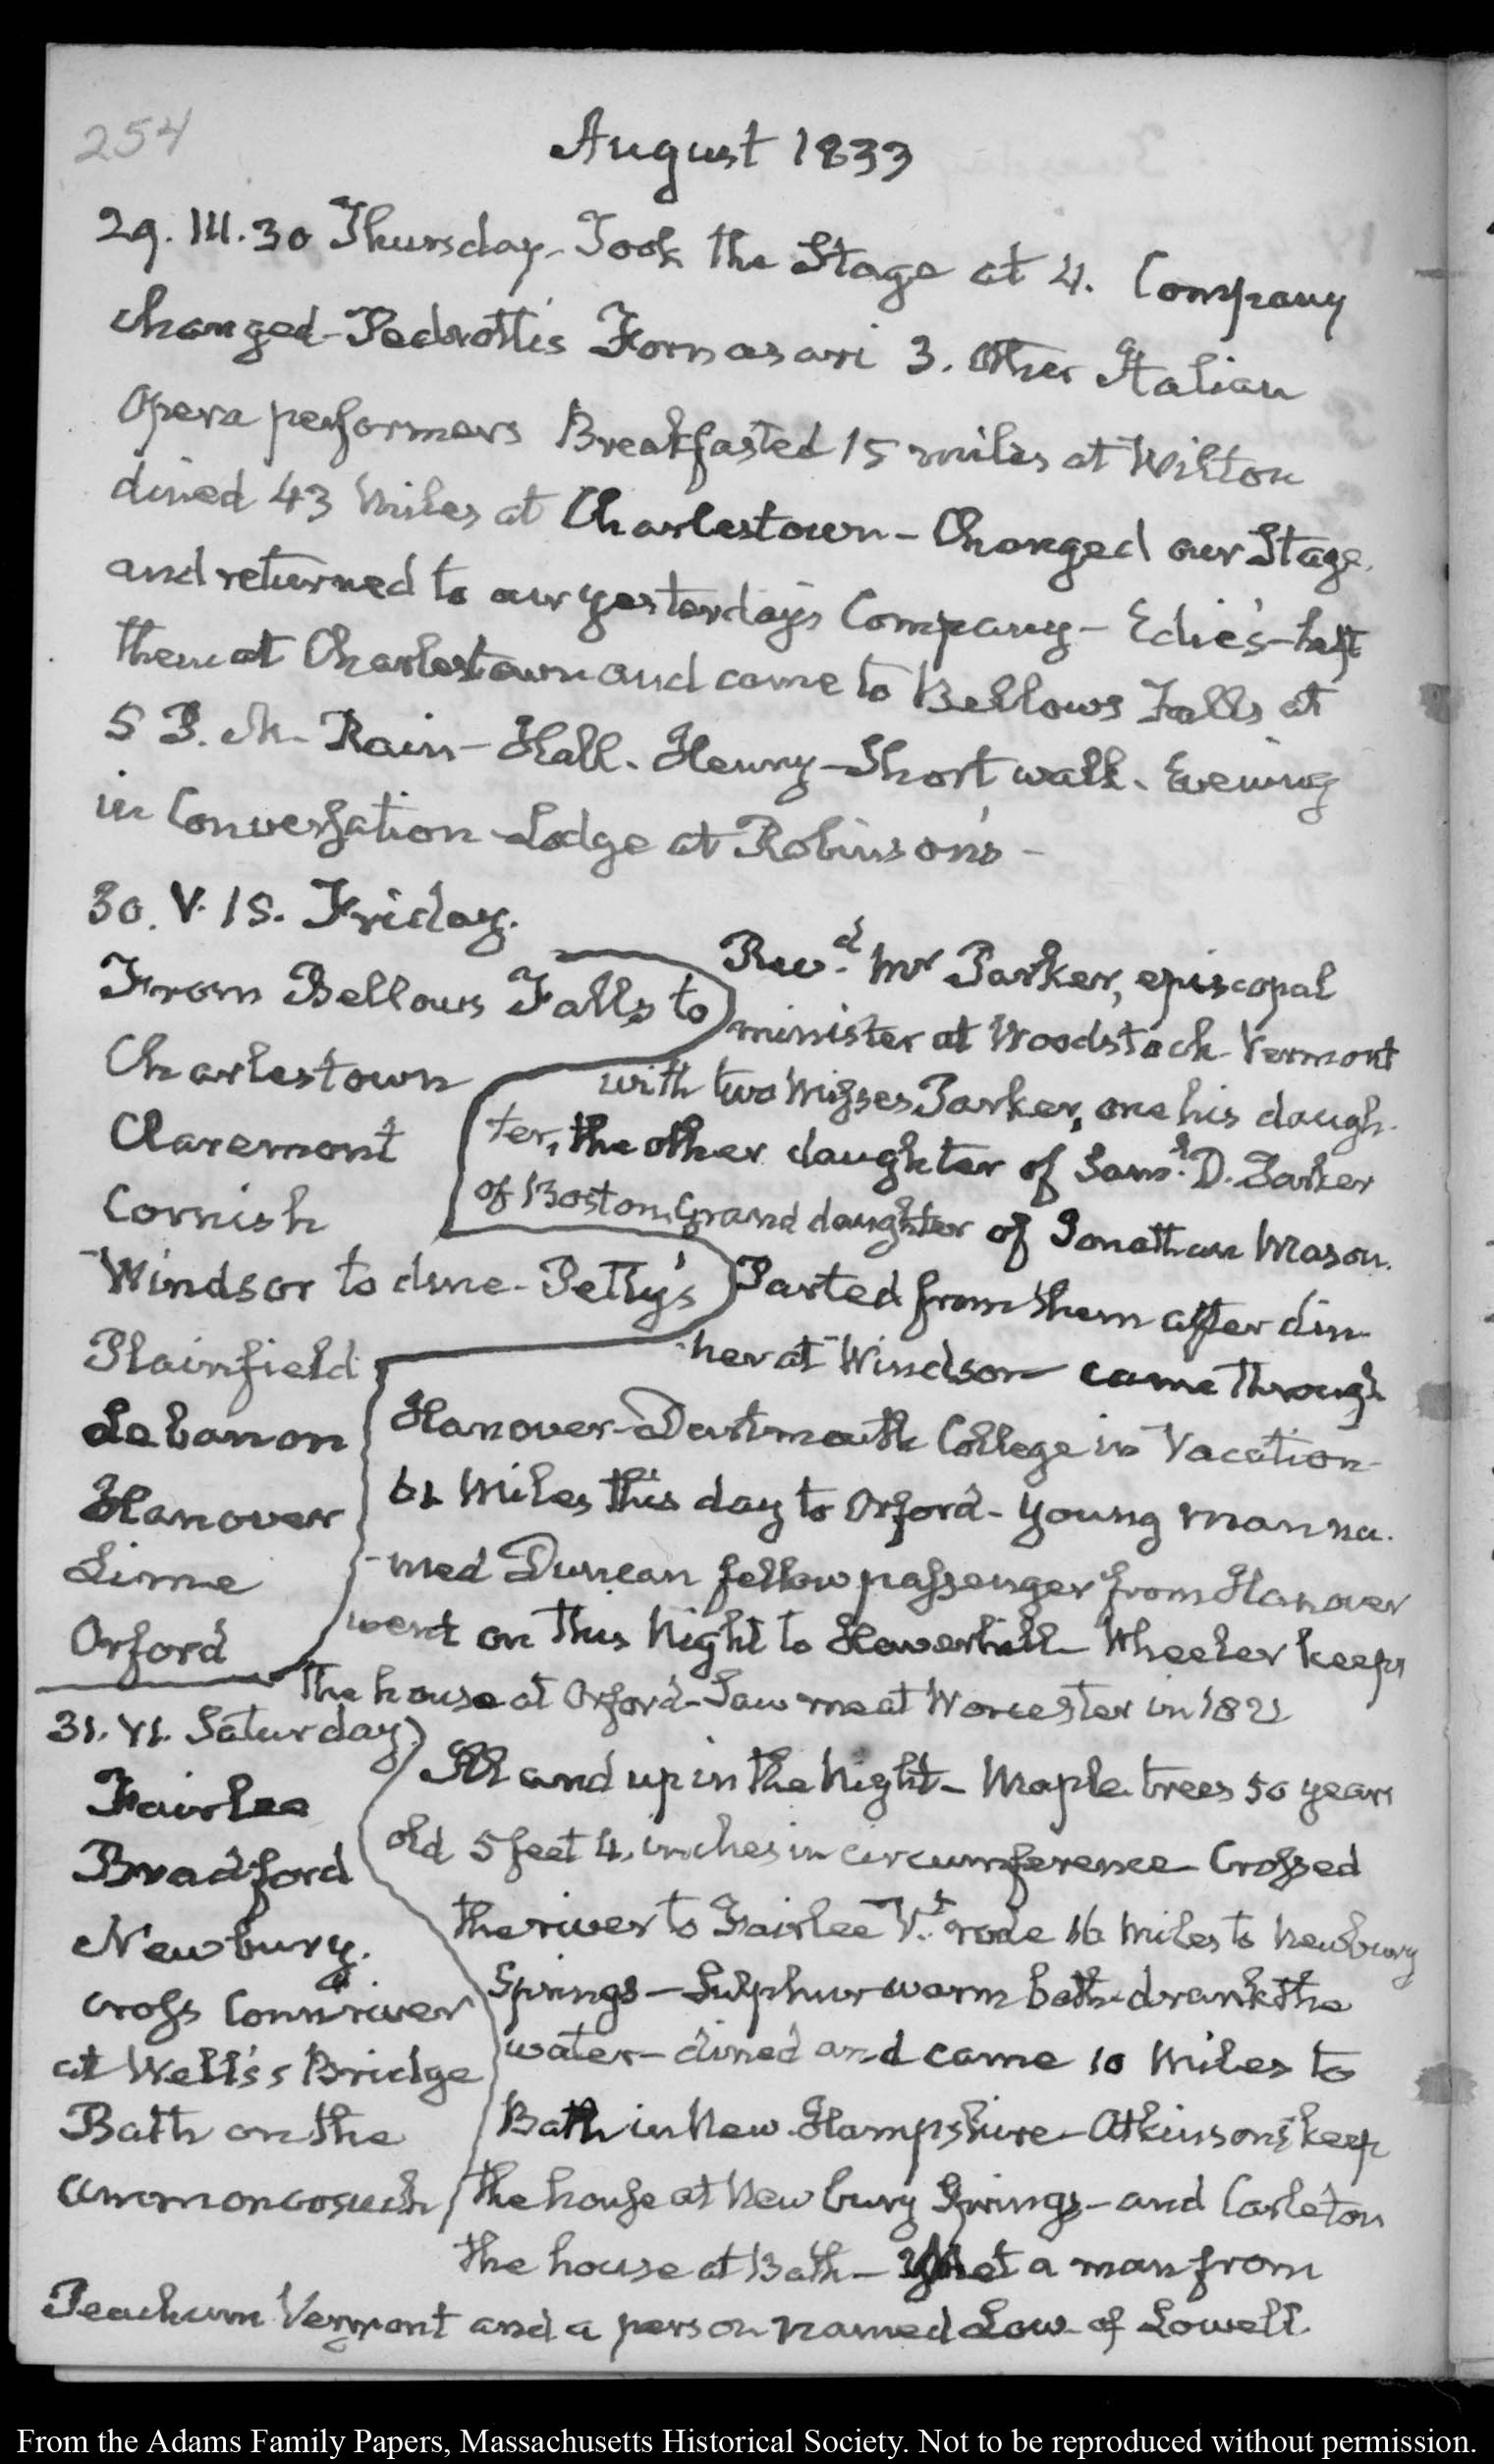 254
August 1833
29. III.30 Thursday. Took the Stage at 4. Company
changed - Pedrotti's Fornasari 3. other Italian
Opera performers Breakfasted 15 miles at Wilton
dined 43 miles at Charlestown - Changed our Stage.
and returned to our yesterday's Company - Edie's - left
them at Charlestown and came to Bellows Falls at
5 P.M. Rain - Hall. Henry - Short walk. Evening
in Conversation - Lodge at Robinson's -
30. V. 15. Friday.
From Bellows Falls to
Charlestown
Claremont
Cornish
Windsor to dine - Petty's
Plainfield
Lebanon
Hanover
Lime
Orford
Revd. Mr Parker, episcopal
minister at Woodstock Vermont
with two Misses Parker, one his daugh-
ter, the other daughter of Saml. D. Parker
of Boston, Grand daughter of Jonathan Mason.
Parted from them after din-
ner at Windsor came through
Hanover - Dartmouth College in Vacation -
61 Miles this day to Orford - Young man na-
-med Duncan fellow passenger from Hanover
went on this Night to Haverhill - Wheeler keeps
the house at Orford - Saw me at Worcester in 1821
31. VI. Saturday.
Fairlee
Bradford
Newbury.
cross Conn. river
at Wells's Bridge
Bath on the
Ammonoosuch
Ill and up in the Night - Maple trees 50 years
old 5 feet 4. inches in circumference - Crossed
the river to Fairlee Vt. rode 16 Miles to Newbury
Springs - Sulphur warm bath - drank the
water - dined and came 10 Miles to
Bath in New Hampshire - Atkinson's keep
the house at Newbury Springs - and Carleton
the house at Bath - Met a man from
Peachum Vermont and a person named Law of Lowell.
From the Adams Family Papers, Massachusetts Historical Society. Not to be reproduced without permission.